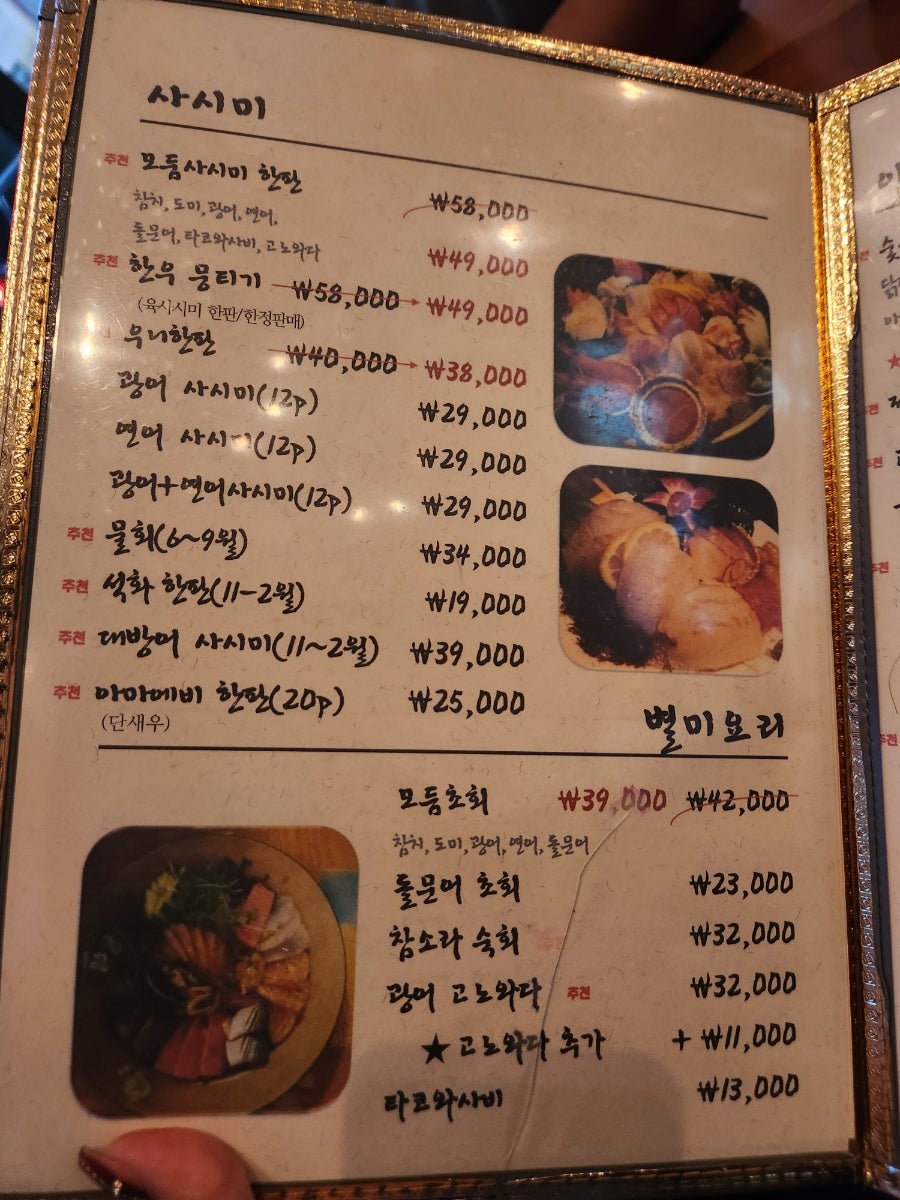 사시미
추천 모둠사시미 한판 ₩58,000
참치, 도미, 광어, 연어,
돌문어, 타코와사비, 고노와다 ₩49,000
추천 한우 뭉티기 ₩58,000 → ₩49,000
(육사시미 한판/한정판매)
우니한판 ₩40,000 → ₩38,000
광어 사시미(12p) ₩29,000
연어 사시미(12p) ₩29,000
광어+연어사시미(12p) ₩29,000
추천 물회(6~9월) ₩34,000
추천 석화 한판(11-2월) ₩19,000
추천 대방어 사시미(11~2월) ₩39,000
추천 아마에비 한판(20p) ₩25,000
(단새우)
별미요리
모둠초회 ₩39,000 ₩42,000
참치, 도미, 광어, 연어, 돌문어
돌문어 초회 ₩23,000
참소라 숙회 ₩32,000
광어 고노와다 추천 ₩32,000
★고노와다 추가 + ₩11,000
타코와사비 ₩13,000